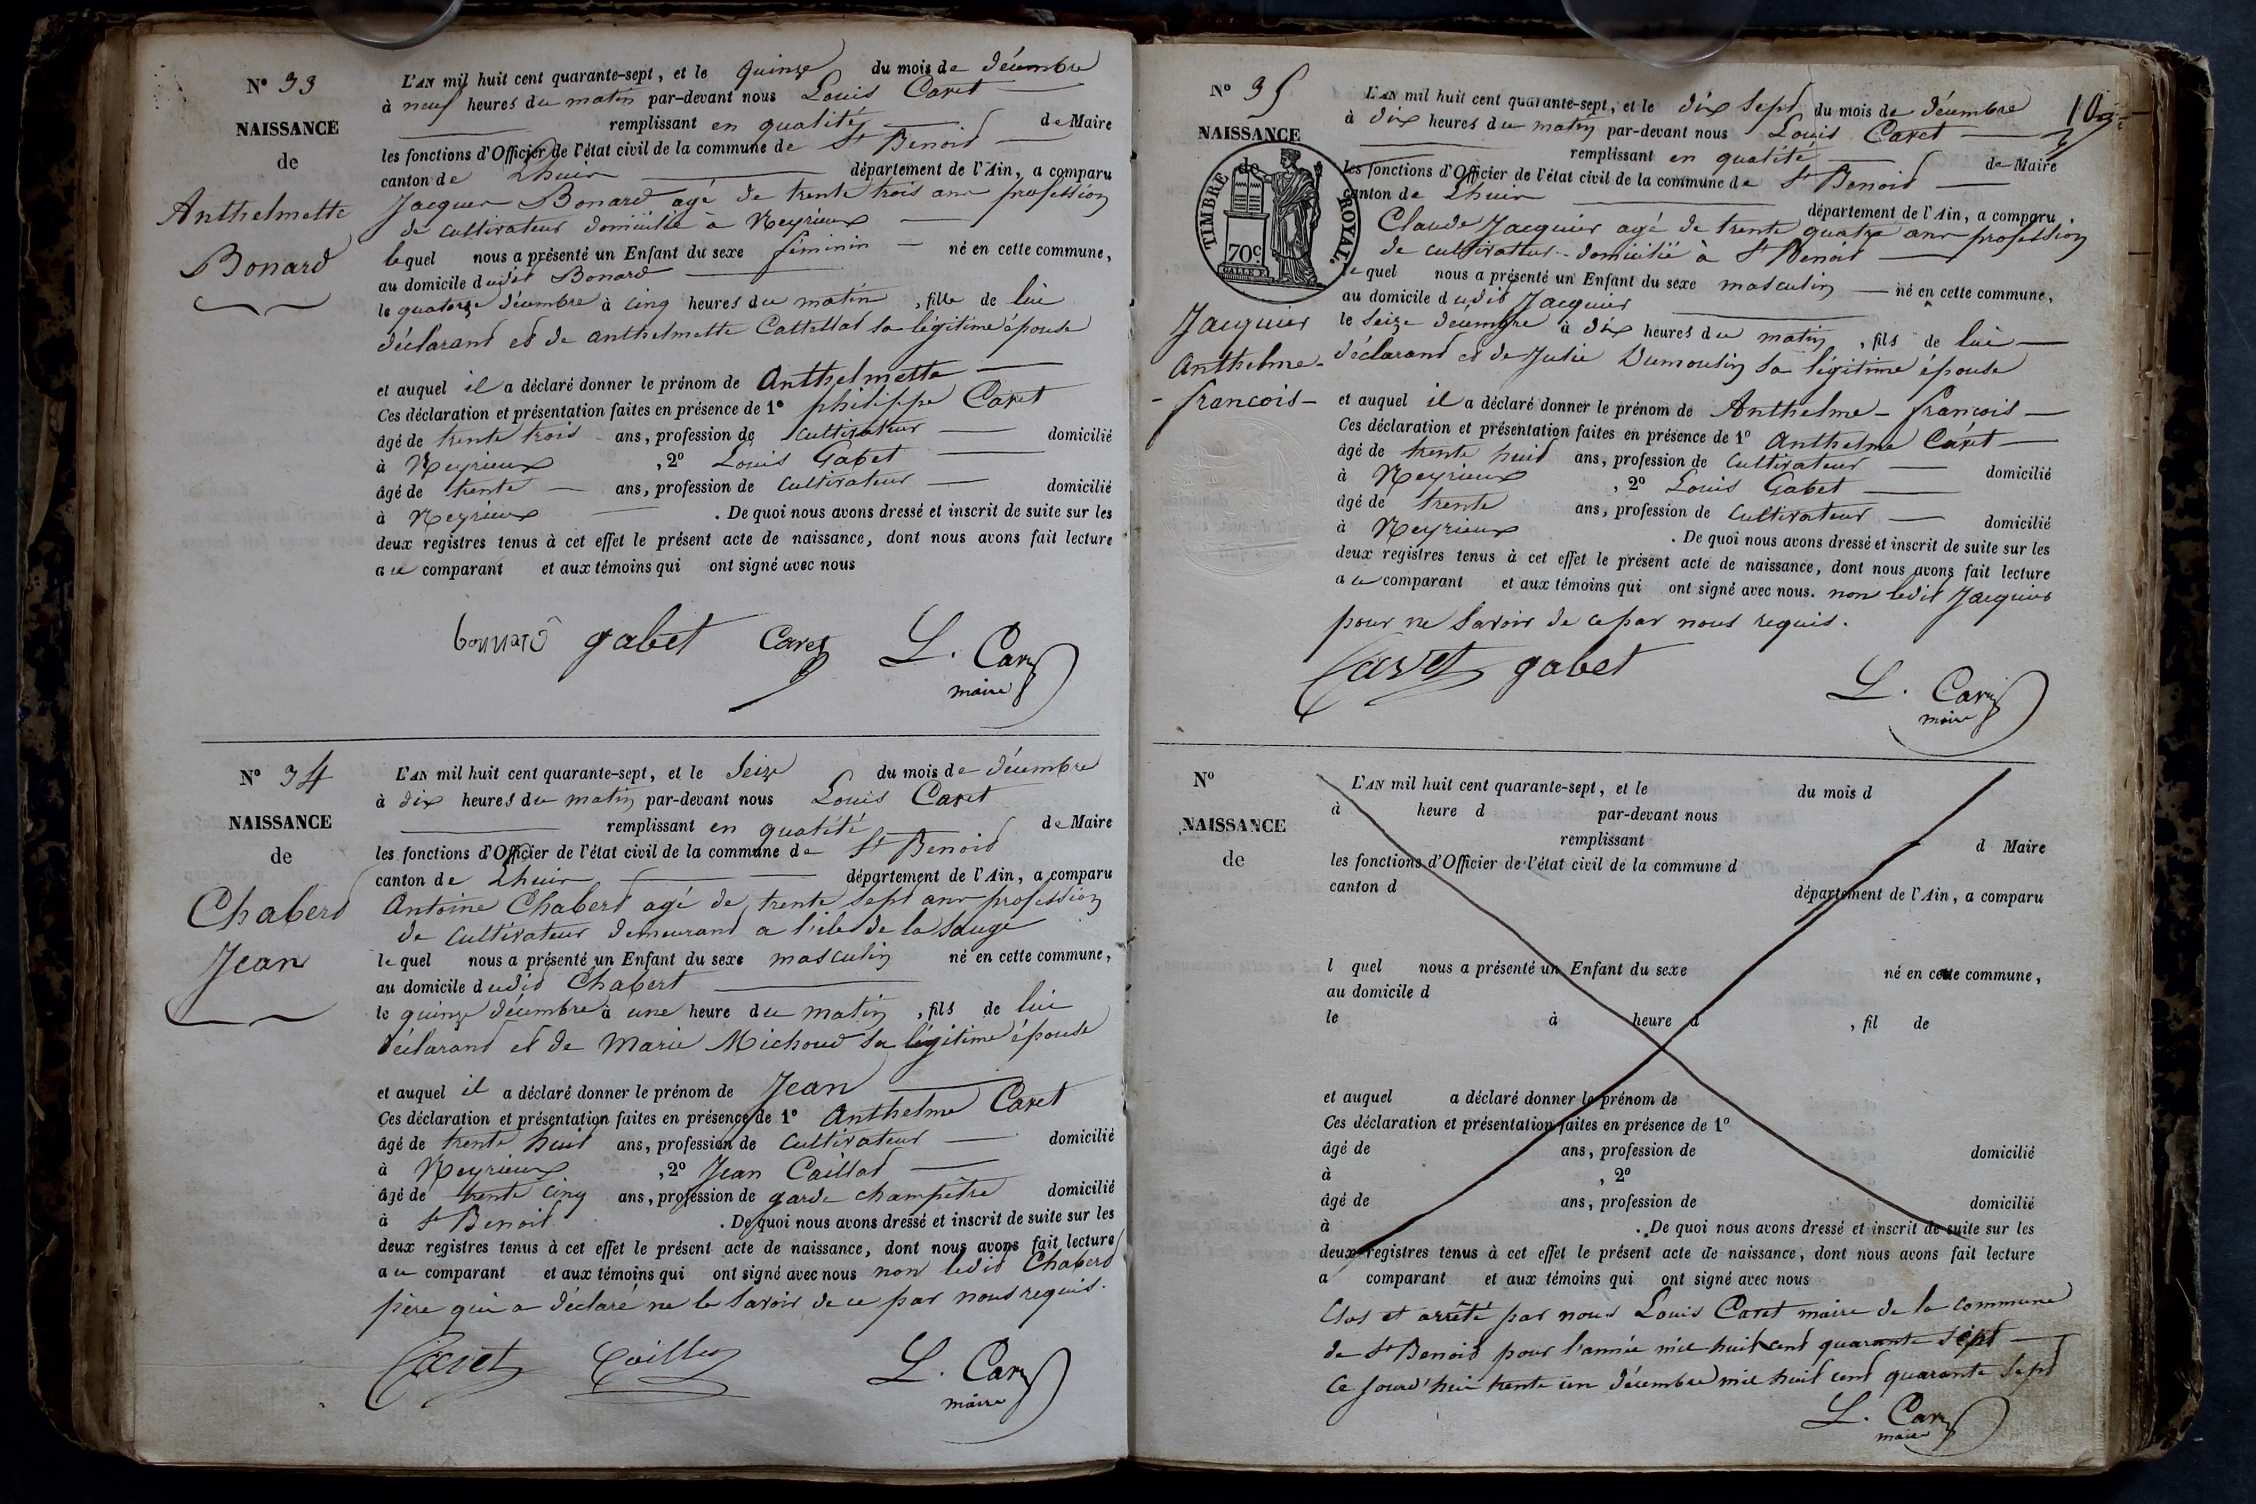 N° 33
NAISSANCE
de
Anthelmette
Bonard
L'AN mil huit cent quarante-sept, et le quinze du mois de décembre
à neuf heures du matin par-devant nous Louis Caret
remplissant en qualité de Maire
les fonctions d'Officier de l'état civil de la commune de St Benoid
canton de Lhuis département de l'Ain, a comparu
Jacques Bonard agé de trente trois ans profession
de cultivateur domicilié à Neyrieux
lequel nous a présenté un Enfant du sexe féminin né en cette commune,
au domicile dudit Bonard
le quatorze décembre à cinq heures du matin, fille de lui
déclarand et de anthelmette Cattellad sa légitime épouse
et auquel il a déclaré donner le prénom de Anthelmette
Ces déclaration et présentation faites en présence de 1° philippe Caret
âgé de trente trois ans, profession de cultivateur domicilié
à Neyrieux, 2° Louis Gabet
âgé de trente ans, profession de cultivateur domicilié
à Neyrieux. De quoi nous avons dressé et inscrit de suite sur les
deux registres tenus à cet effet le présent acte de naissance, dont nous avons fait lecture
au comparant et aux témoins qui ont signé avec nous
bonnard gabet Caret L. Caret
maire
N° 34
NAISSANCE
de
Chaberd
Jean
L'AN mil huit cent quarante-sept, et le Seize du mois de décembre
à dix heures du matin par-devant nous Louis Caret
remplissant en qualité de Maire
les fonctions d'Officier de l'état civil de la commune de St Benoid
canton de Lhuis département de l'Ain, a comparu
Antoine Chabert agé de trente sept ans profession
de cultivateur demeurand a l'ile de la Sauge
lequel nous a présenté un Enfant du sexe masculin né en cette commune,
au domicile dudid Chabert
le quinze décembre à une heure du matin, fils de lui
déclarand et de Marie Michoud sa légitime épouse
et auquel il a déclaré donner le prénom de Jean
Ces déclaration et présentation faites en présence de 1° Anthelme Caret
âgé de trente huit ans, profession de cultivateur domicilié
à Neyrieux, 2° Jean Caillod
âgé de trente cinq ans, profession de garde champêtre domicilié
à St Benoit. De quoi nous avons dressé et inscrit de suite sur les
deux registres tenus à cet effet le présent acte de naissance, dont nous avons fait lecture
au comparant et aux témoins qui ont signé avec nous non ledid Chaberd
père qui a déclaré ne le savoir de ce par nous requis.
Caret L. Caret
maire
N° 35
NAISSANCE
de
TIMBRE ROYAL.
70c
Jacquier
Anthelme-
-francois-
L'AN mil huit cent quarante-sept, et le dix sept du mois de décembre
à dix heures du matin par-devant nous Louis Caret
remplissant en qualité de Maire
les fonctions d'Officier de l'état civil de la commune de St Benoid
canton de Lhuis département de l'Ain, a comparu
Claude Jacquier agé de trente quatre ans profession
de cultivateur domicilié à St Benoit
lequel nous a présenté un Enfant du sexe masculin né en cette commune,
au domicile dudid Jacquier
le seize décembre à dix heures du matin, fils de lui
déclarand et de Julie Dumoulin sa légitime épouse
et auquel il a déclaré donner le prénom de Anthelme-francois
Ces déclaration et présentation faites en présence de 1° Anthelme Caret
âgé de trente huit ans, profession de cultivateur domicilié
à Neyrieux, 2° Louis Gabet
âgé de trente ans, profession de cultivateur domicilié
à Neyrieux. De quoi nous avons dressé et inscrit de suite sur les
deux registres tenus à cet effet le présent acte de naissance, dont nous avons fait lecture
au comparant et aux témoins qui ont signé avec nous. non ledit Jacquier
pour ne savoir de ce par nous requis.
Caret gabet L. Caret
maire
N°
NAISSANCE
de
L'AN mil huit cent quarante-sept, et le du mois d
à heure d par-devant nous
remplissant d Maire
les fonctions d'Officier de l'état civil de la commune d
canton d département de l'Ain, a comparu
l quel nous a présenté un Enfant du sexe né en cette commune,
au domicile d
le à heure d, fil de
et auquel a déclaré donner le prénom de
Ces déclaration et présentation faites en présence de 1°
âgé de ans, profession de domicilié
à, 2°
âgé de ans, profession de domicilié
à. De quoi nous avons dressé et inscrit de suite sur les
deux registres tenus à cet effet le présent acte de naissance, dont nous avons fait lecture
a comparant et aux témoins qui ont signé avec nous
Clos et arrêté par nous Louis Caret maire de la commune
de St Benoid pour l'année mil huit cent quarante sept
Ce jourd'hui trente un décembre mil huit cent quarante sept
L. Caret
maire